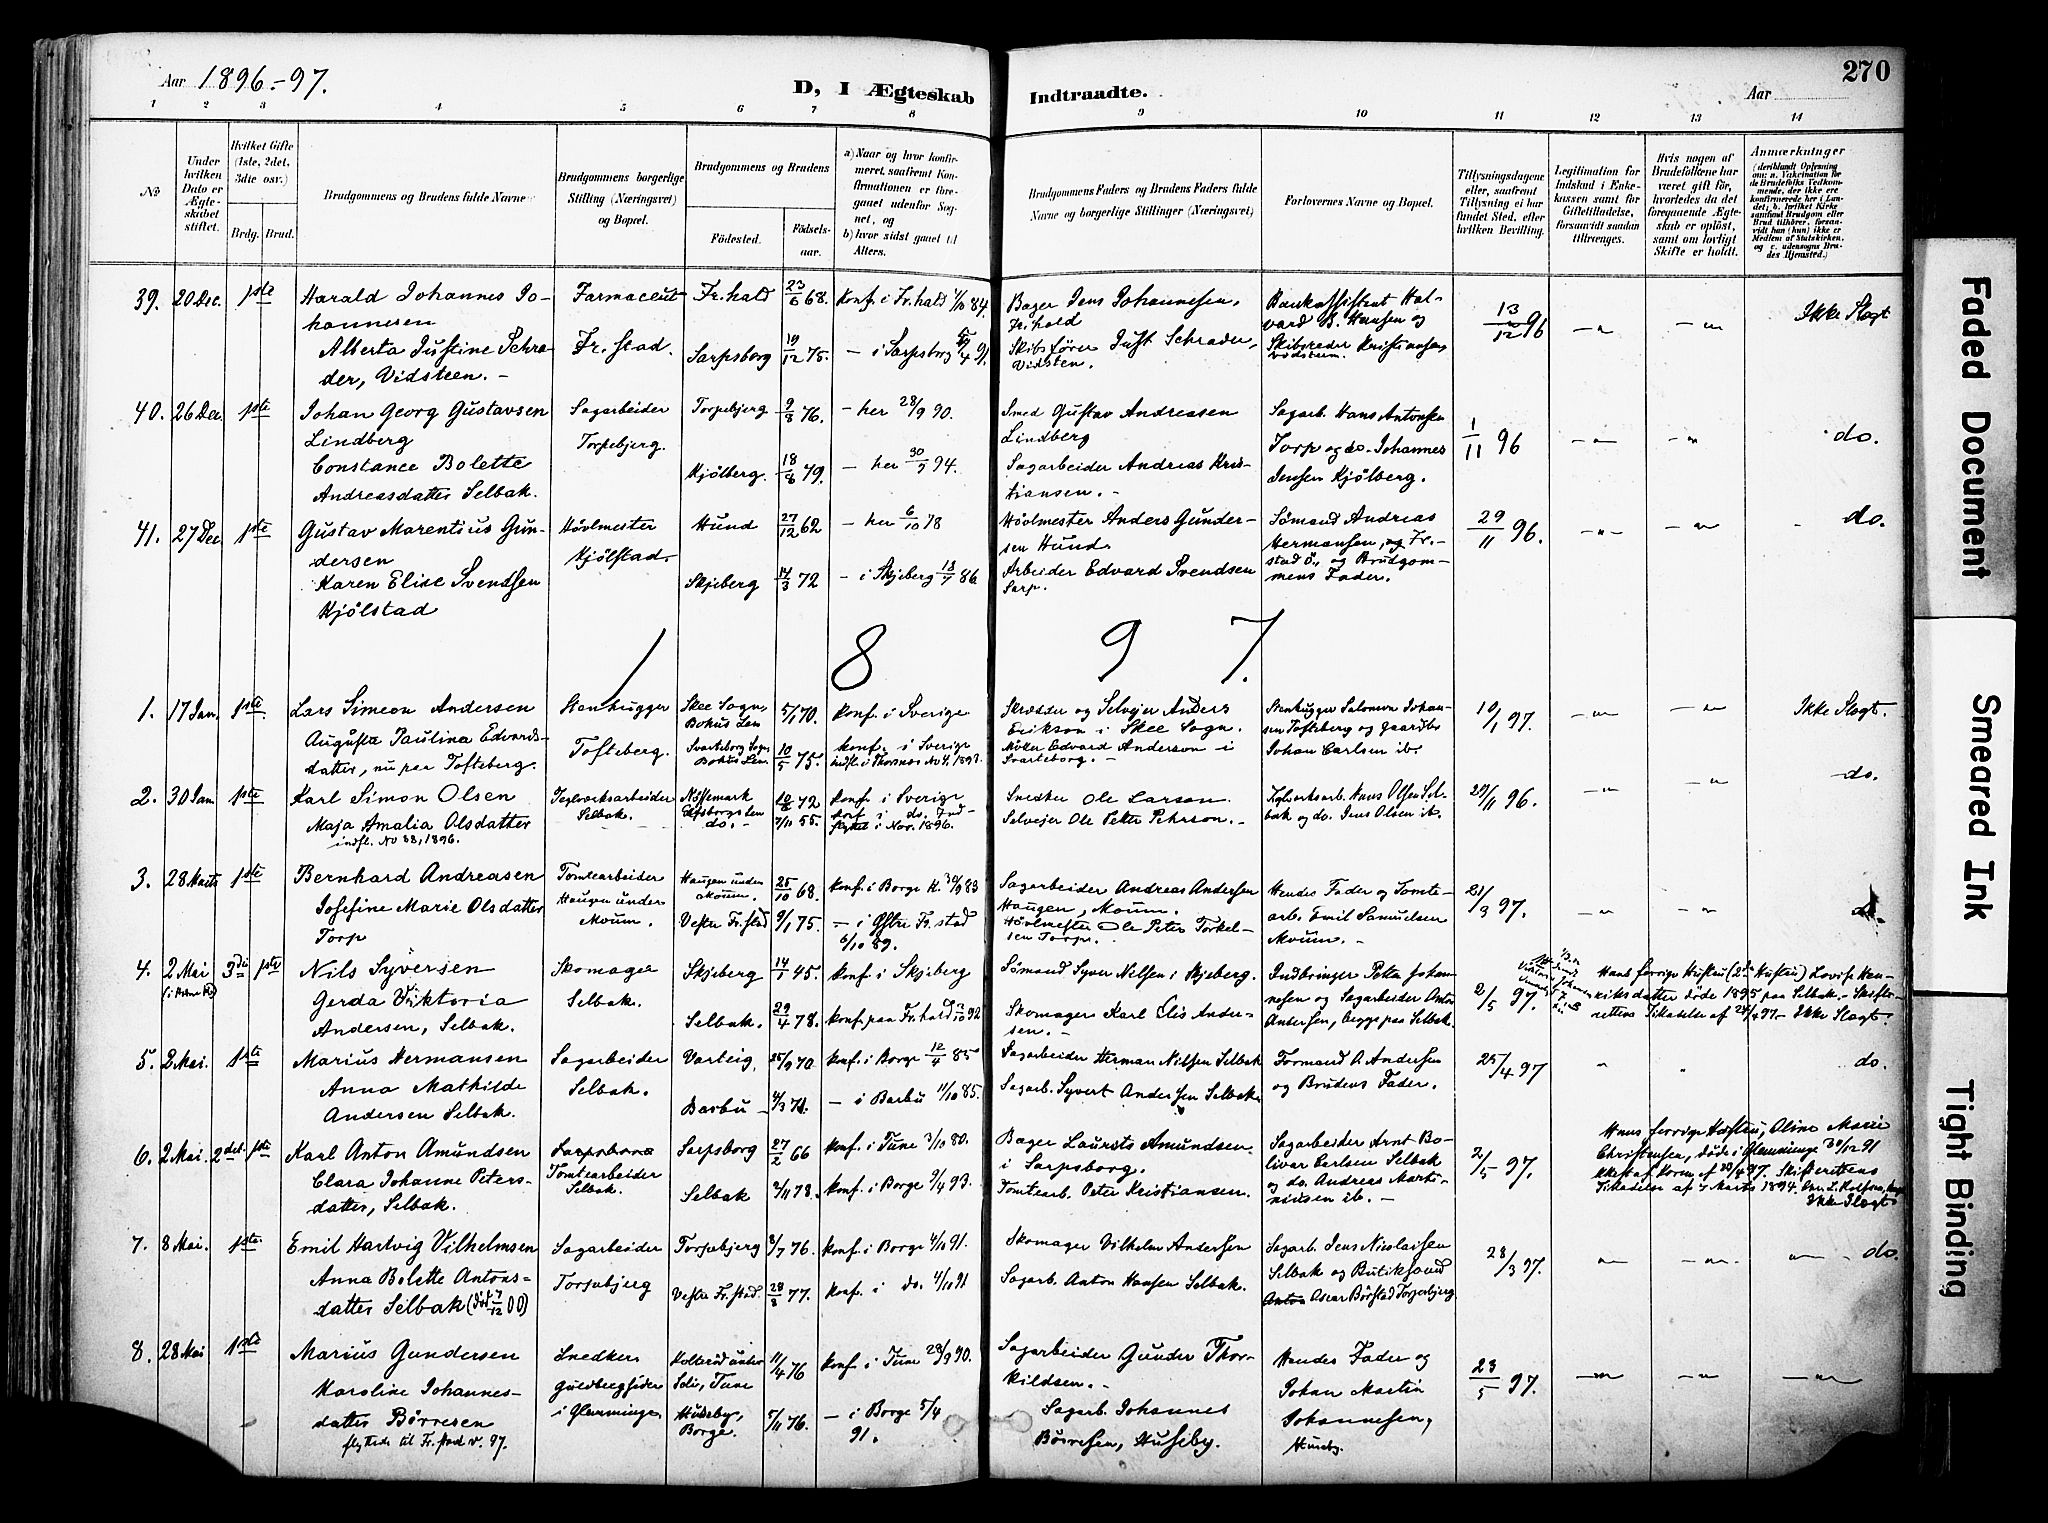 Aar 1896-97.
D, I Ægteskab Indtraadte.
Aar
270
1 2 3 4 5 6 7 8 9 10 11 12 13 14
No
Under hvilken Dato er Ægteskabet stiftet.
Hvilket Gifte (1ste, 2det, 3die osv.)
Brdg. Brud.
Brudgommens og Brudens fulde Navne
Brudgommens borgerlige Stilling (Næringsvei) og Bopæl.
Brudgommens og Brudens
Födested. Födselsaar.
a) Naar og hvor konfirmeret, saafremt Konfirmationen er foregaaet udenfor Sognet, og
b) hvor sidst gaaet til Alters.
Brudgommens Faders og Brudens Faders fulde Navne og borgerlige Stillinger (Næringsvei)
Forlovernes Navne og Bopæl.
Tillysningsdagene eller, saafremt Tillysning ei har fundet Sted, efter hvilken Bevilling.
Legitimation for Indskud i Enkekassen samt for Giftetilladelse, forsaavidt saadan tiltrænges.
Hvis nogen af Brudefolkene har været gift för, hvorledes da det foregaaende Ægteskab er oplöst, samt om lovligt Skifte er holdt.
Anmærkninger
39. 20 Dec. 1ste Harald Johannes Johannesen Farmaceut Fr.hald 23/6 68. Konf. i Fr.hald 1/10 84. Bager Jens Johannesen, Fr.hald Bankassistent Halvard B. Hansen og 13/12 96 Ikke Slægt
Alberta Justine Schrader, Vidsteen. Fr.stad. Sarpsborg 19/12 75. — i Sarpsborg 5/4 91. Skibsfører Just Schrader, Vidsten. Skibsreder Kristiansen Vidsteen.
40. 26 Dec. 1ste Johan Georg Gustavsen Lindberg Sagarbeider Torpebjerg. Torpebjerg 9/8 76. — her 28/9 90. Smed Gustav Andreasen Lindberg Sagarb. Hans Antonsen Torp og do. Johannes Jensen Kjölberg. 1/11 96 do.
Constance Bolette Andreasdatter Selbak. Kjölberg. 18/8 79. — her 30/9 94. Sagarbeider Andreas Kristiansen.
41. 27 Dec 1ste Gustav Marentius Gundersen Hövlmester Kjölstad. Hund 27/12 62 — her 6/10 78 Hövlmester Anders Gundersen Hund. Sömand Andreas Hermansen, Fr.stad Ö., og Brudgommens Fader. 29/11 96. do.
Karen Elise Svendsen Kjölstad Skjeberg 14/3 72 — i Skjeberg 18/7 86 Arbeider Edvard Svendsen Sarp.
1 8 9 7.
1. 17 Jan. 1ste. Lars Simeon Andersen Stenhugger Tofteberg. Skee Sogn, Bohus Len 5/1 70. konf. i Sverige Skrædder og Selveier Anders Erikson i Skee Sogn. Stenhugger Salomon Johansen Tofteberg og Gaardbr. Johan Carlsen ib. 10/1 97. Ikke Slægt.
Augusta Paulina Edvardsdatter, nu paa Tofteberg. Svarteborg Sogn Bohus Len. 10/5 75. konf. i Sverige Edvard Anderson i Svarteborg.
2. 30 Jan 1ste Karl Simon Olsen Teglverksarbeider Selbak. Nössemark Elfsborgs len 10/8 72 konf. i Sverige Snedker Ole Larson. Teglverksarb. Hans Olsen Selbak og do. Jens Olsen ib. 29/11 96. do.
Maja Amalia Olsdatter indfl. No 38, 1896. do. 2/11 55. konf. i do. Indflyttet i Nov. 1896. Selveier Ole Peter Pehrson.
3. 28 Marts 1ste Bernhard Andreasen Tomtearbeider Haugen under Moum. Haugen under Moum. 25/10 68. konf. i Borge K. 30/9 83 Sagarbeider Andreas Andersen Haugen, Moum. Hendes Fader og Tomtearb. Emil Samuelsen Moum. 21/3 97. do.
Josefine Marie Olsdatter Torp Vestre Fr.stad 9/1 75. — i Østre Fr.stad 6/10 89. Hövlmester Ole Peter Torkelsen Torp.
4. 2 Mai 3die 1ste Nils Syversen Skomager Selbak. Skjeberg 14/1 45. konf. i Skjeberg Sömand Syver Nilsen i Skjeberg. Indbringer Petter Johannesen og Sagarbeider Anton Andersen, begge paa Selbak. 2/5 97. Hans forrige Hustru (2den Hustru) Lovise Henriksdatter döde 1895 paa Selbak. Skifterettens Tilladelse af 24/4 97. Ikke Slægt.
Gerda Viktoria Andersen, Selbak. Selbak. 29/4 78. konf. paa Fr.hald 2/10 92 Skomager Karl Elis Andersen.
5. 2 Mai. 1ste Marius Hermansen Sagarbeider Selbak. Varteig. 25/9 70. konf. i Borge 12/4 85 Sagarbeider Herman Nilsen Selbak Formand A. Andersen og Brudens Fader. 25/4 97 do.
Anna Mathilde Andersen Selbak. Barbu 4/3 71. — i Barbu 11/10 85. Sagarb. Syvert Andersen Selbak.
6. 2 Mai. 2det 1ste Karl Anton Amundsen Sarpsborg Tomtearbeider Selbak. Sarpsborg 27/2 66 konf. i Tune 3/10 80. Bager Laurits Amundsen i Sarpsborg. Sagarbeider Arnt Bolivar Carlsen Selbak og do. Andreas Martinsen ib. 2/5 97. Hans forrige Hustru, Oline Marie Christensen, döde i Glemminge 30/12 91 Skifterettens Tilladelse af 7 Marts 1894. Ikke Slægt.
Clara Johanne Petersdatter, Selbak. Selbak 2/11 78. konf. i Borge 9/4 93. Tomtearb. Peter Kristiansen.
7. 8 Mai. 1ste. Emil Hartvig Vilhelmsen Sagarbeider Torpebjerg Torpebjerg 3/7 76. konf. i Borge 4/10 91. Skomager Vilhelm Andersen Sagarb. Jens Nicolaisen Selbak og Butiksbud Oscar Börstad Torpebjerg. 28/3 97. do.
Anna Bolette Antonsdatter Selbak (död 7/12 00) Vestre Fr.stad. 28/8 77. konf. i do. 4/10 91 Sagarb. Anton Hansen Selbak.
8. 28 Mai 1ste Marius Gundersen Snedker i Glemminge Tune 11/4 76 konf. i Tune 28/9 90. Sagarbeider Gunder Thorkildsen. Hendes Fader og Johan Martin Johannesen, Huseby. 23/5 97.
Karoline Johannesdatter Börresen flyttede til Fr.stad v. 97. Huseby, Borge. 5/11 76. — i Borge 5/4 91. Sagarb. Johannes Börresen, Huseby.
Faded Document
Smeared Ink
Tight Binding